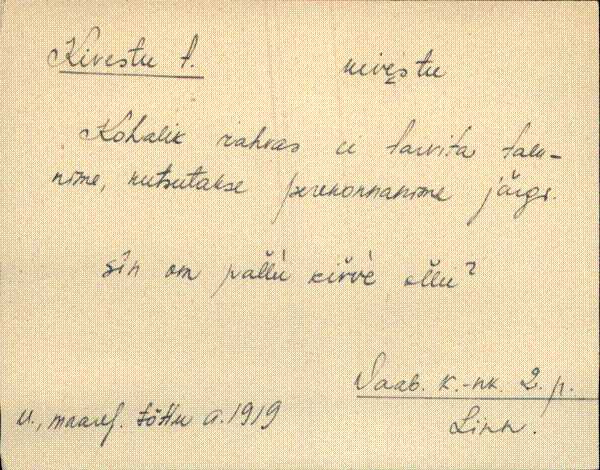 Kivestu t. kivęstu
Kohalik rahvas ei tarvita talu-
nime, kutsutakse perekonnanime järgi.
sîn om pallù kivvè ollu
Saab. k.-nk. 2. p.
Linn.
u., maaref. tõttu a. 1919